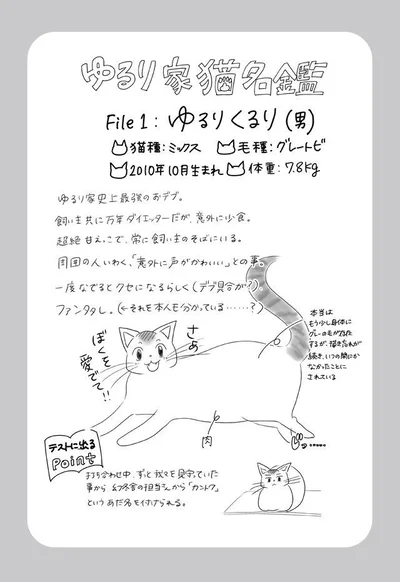 ゆるり家猫名鑑
File 1: ゆるりくるり(男)
猫種:ミックス 毛種:グレートビ
2010年10月生まれ 体重:7.8kg
ゆるり家史上最強のおデブ。
飼い主共に万年ダイエッターだが、意外に少食。
超絶甘えっこで、常に飼い主のそばにいる。
周囲の人いわく、「意外に声がかわいい」との事。
一度なでるとクセになるらしく(デブ具合が?)
ファンタタし。(←それを本人も分かっている……?)
本当は
もう少し身体に
グレーの毛が存在
するが、描き忘れが
続き、いつの間にか
なかったことに
されている
さぁ
ぼくを
愛でて!!
肉
ビッ……
テストに出る
Point
打ち合わせ中、ずっと我々を見守っていた
事から幻冬舎の担当さんから「カントク」
というあだ名を付けられる。